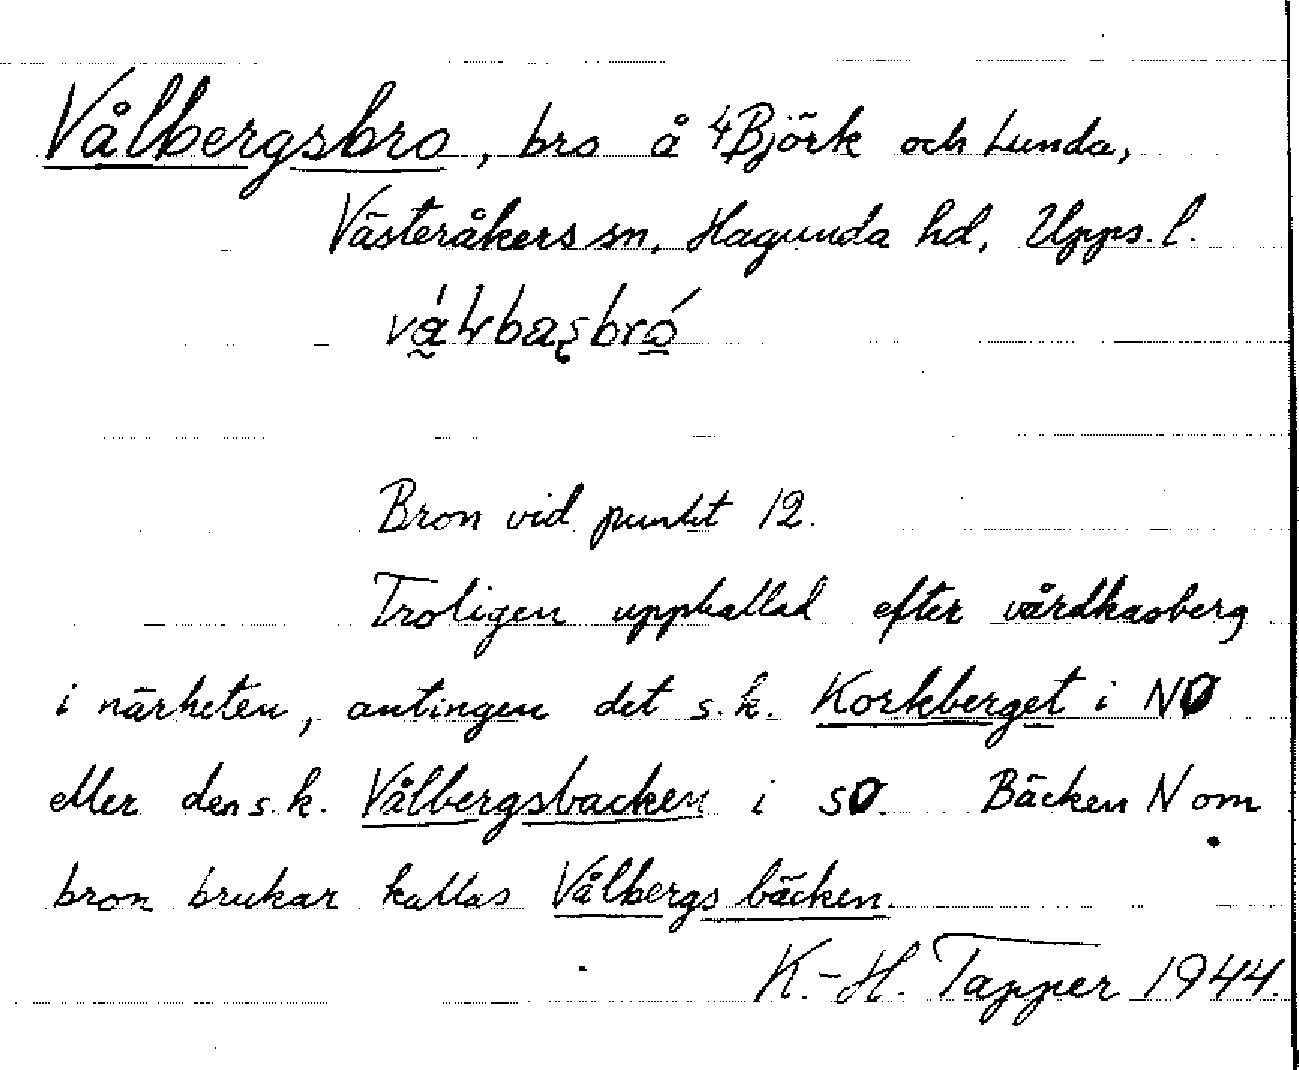 Vålbergsbro, bro å 4/Björk och Lunda,
Västeråkers sn, Hagunda hd, Upps. l.
Bron vid punkt 12.
Troligen uppkallad efter vårdkasberg
i närheten, antingen det s.k. Korkberget i NØ
eller den s.k. Vålbergsbacken i SØ. Bäcken N om
bron brukar kallas Vålbergsbäcken.
K.-H. Tapper 1944.